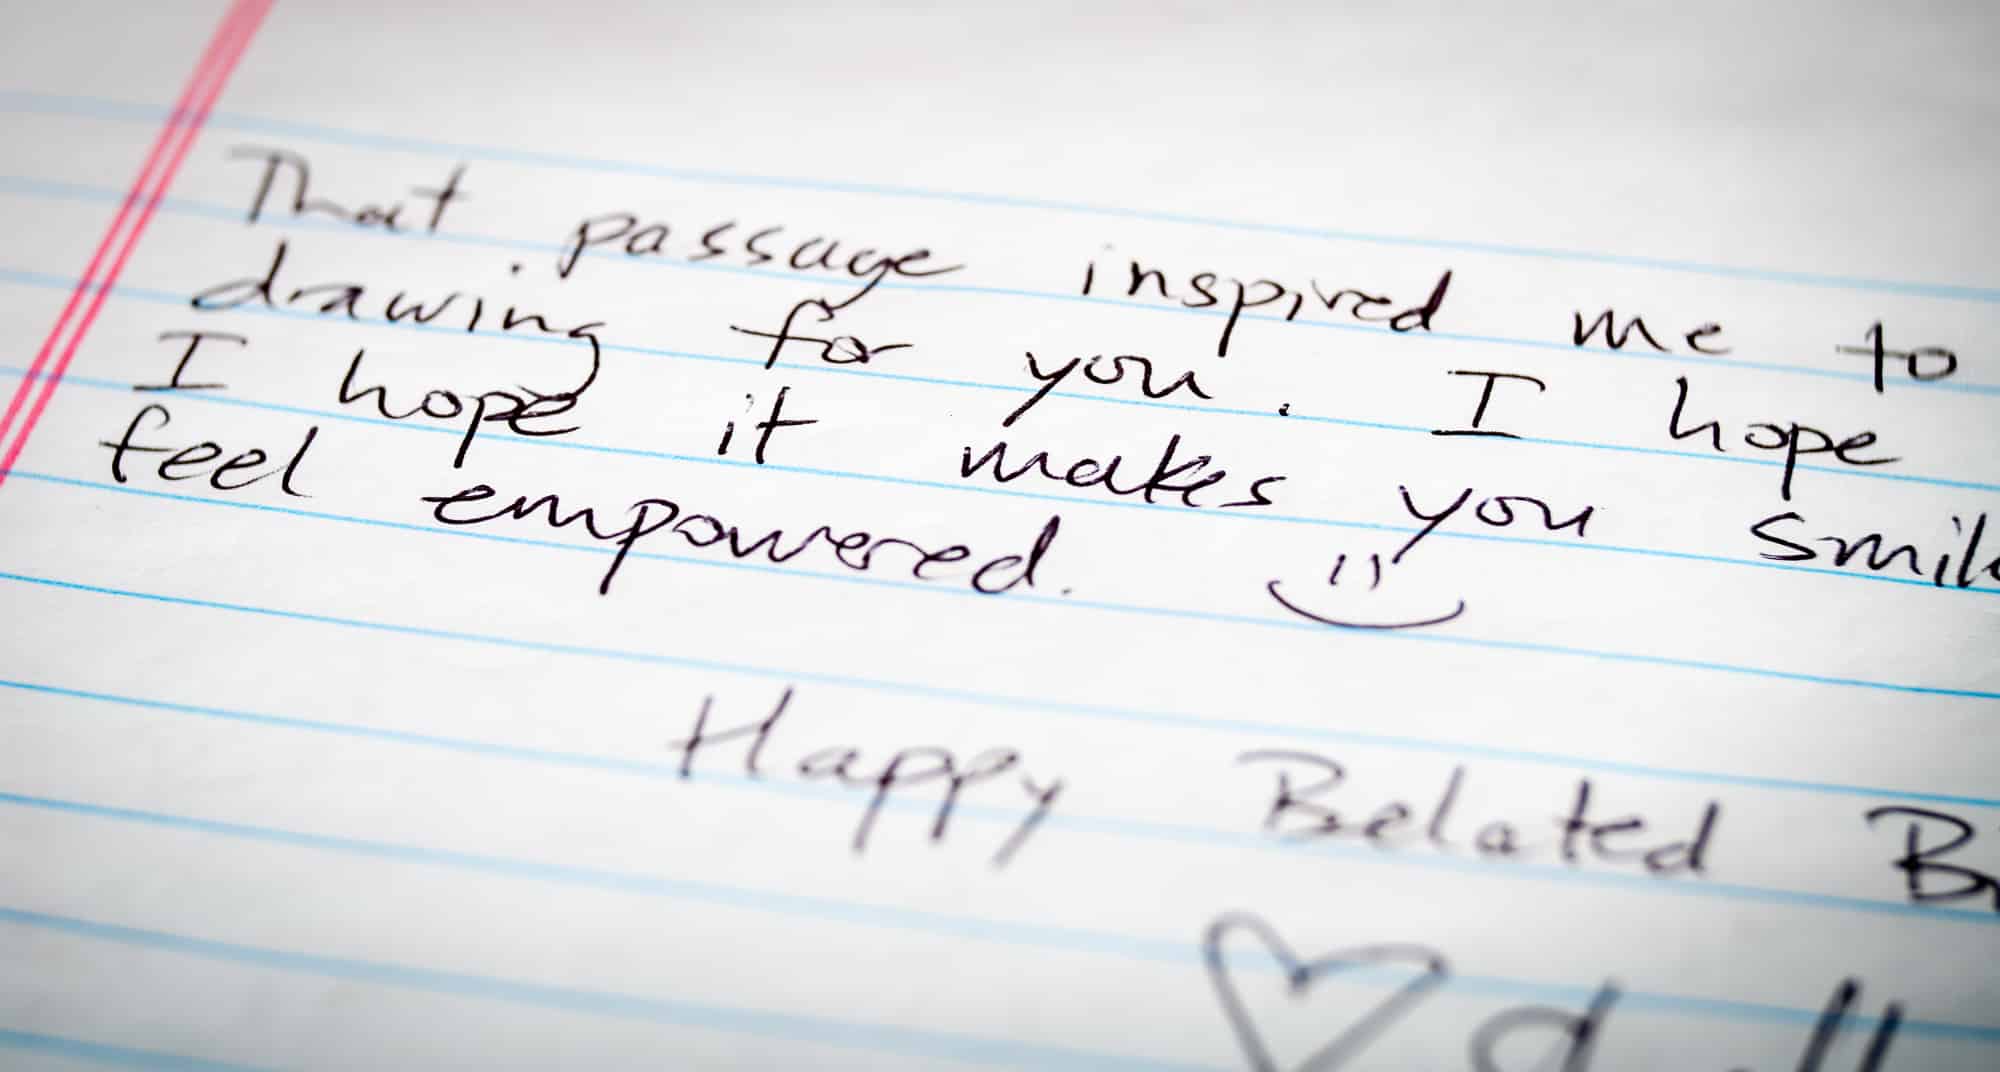 That passage inspired me to
drawing for you. I hope
I hope it makes you smil
feel empowered.
Happy Belated B